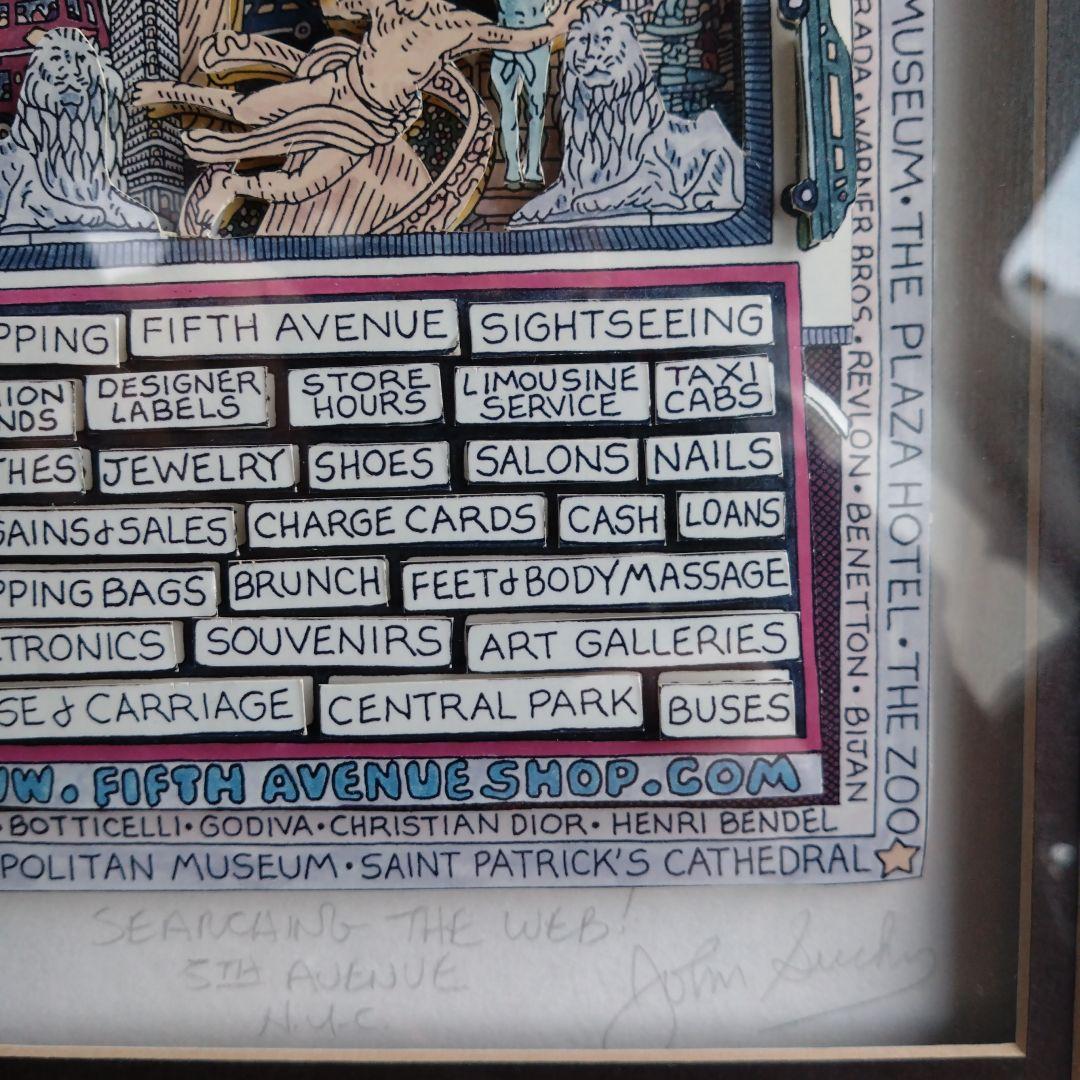 PPING FIFTH AVENUE SIGHTSEEING
ION
NDS
DESIGNER
LABELS
STORE
HOURS
LIMOUSINE
SERVICE
TAXI
CABS
THES JEWELRY SHOES SALONS NAILS
GAINS & SALES CHARGE CARDS CASH LOANS
PPING BAGS BRUNCH FEET & BODY MASSAGE
TRONICS SOUVENIRS ART GALLERIES
SE & CARRIAGE CENTRAL PARK BUSES
WW. FIFTH AVENUE SHOP.COM
• BOTTICELLI • GODIVA • CHRISTIAN DIOR • HENRI BENDEL
POLITAN MUSEUM • SAINT PATRICK'S CATHEDRAL
RADA • WARNER BROS. • REVLON • BENETTON • BIJAN
MUSEUM • THE PLAZA HOTEL • THE ZOO
SEARCHING THE WEB!
5TH AVENUE
N.Y.C.
John